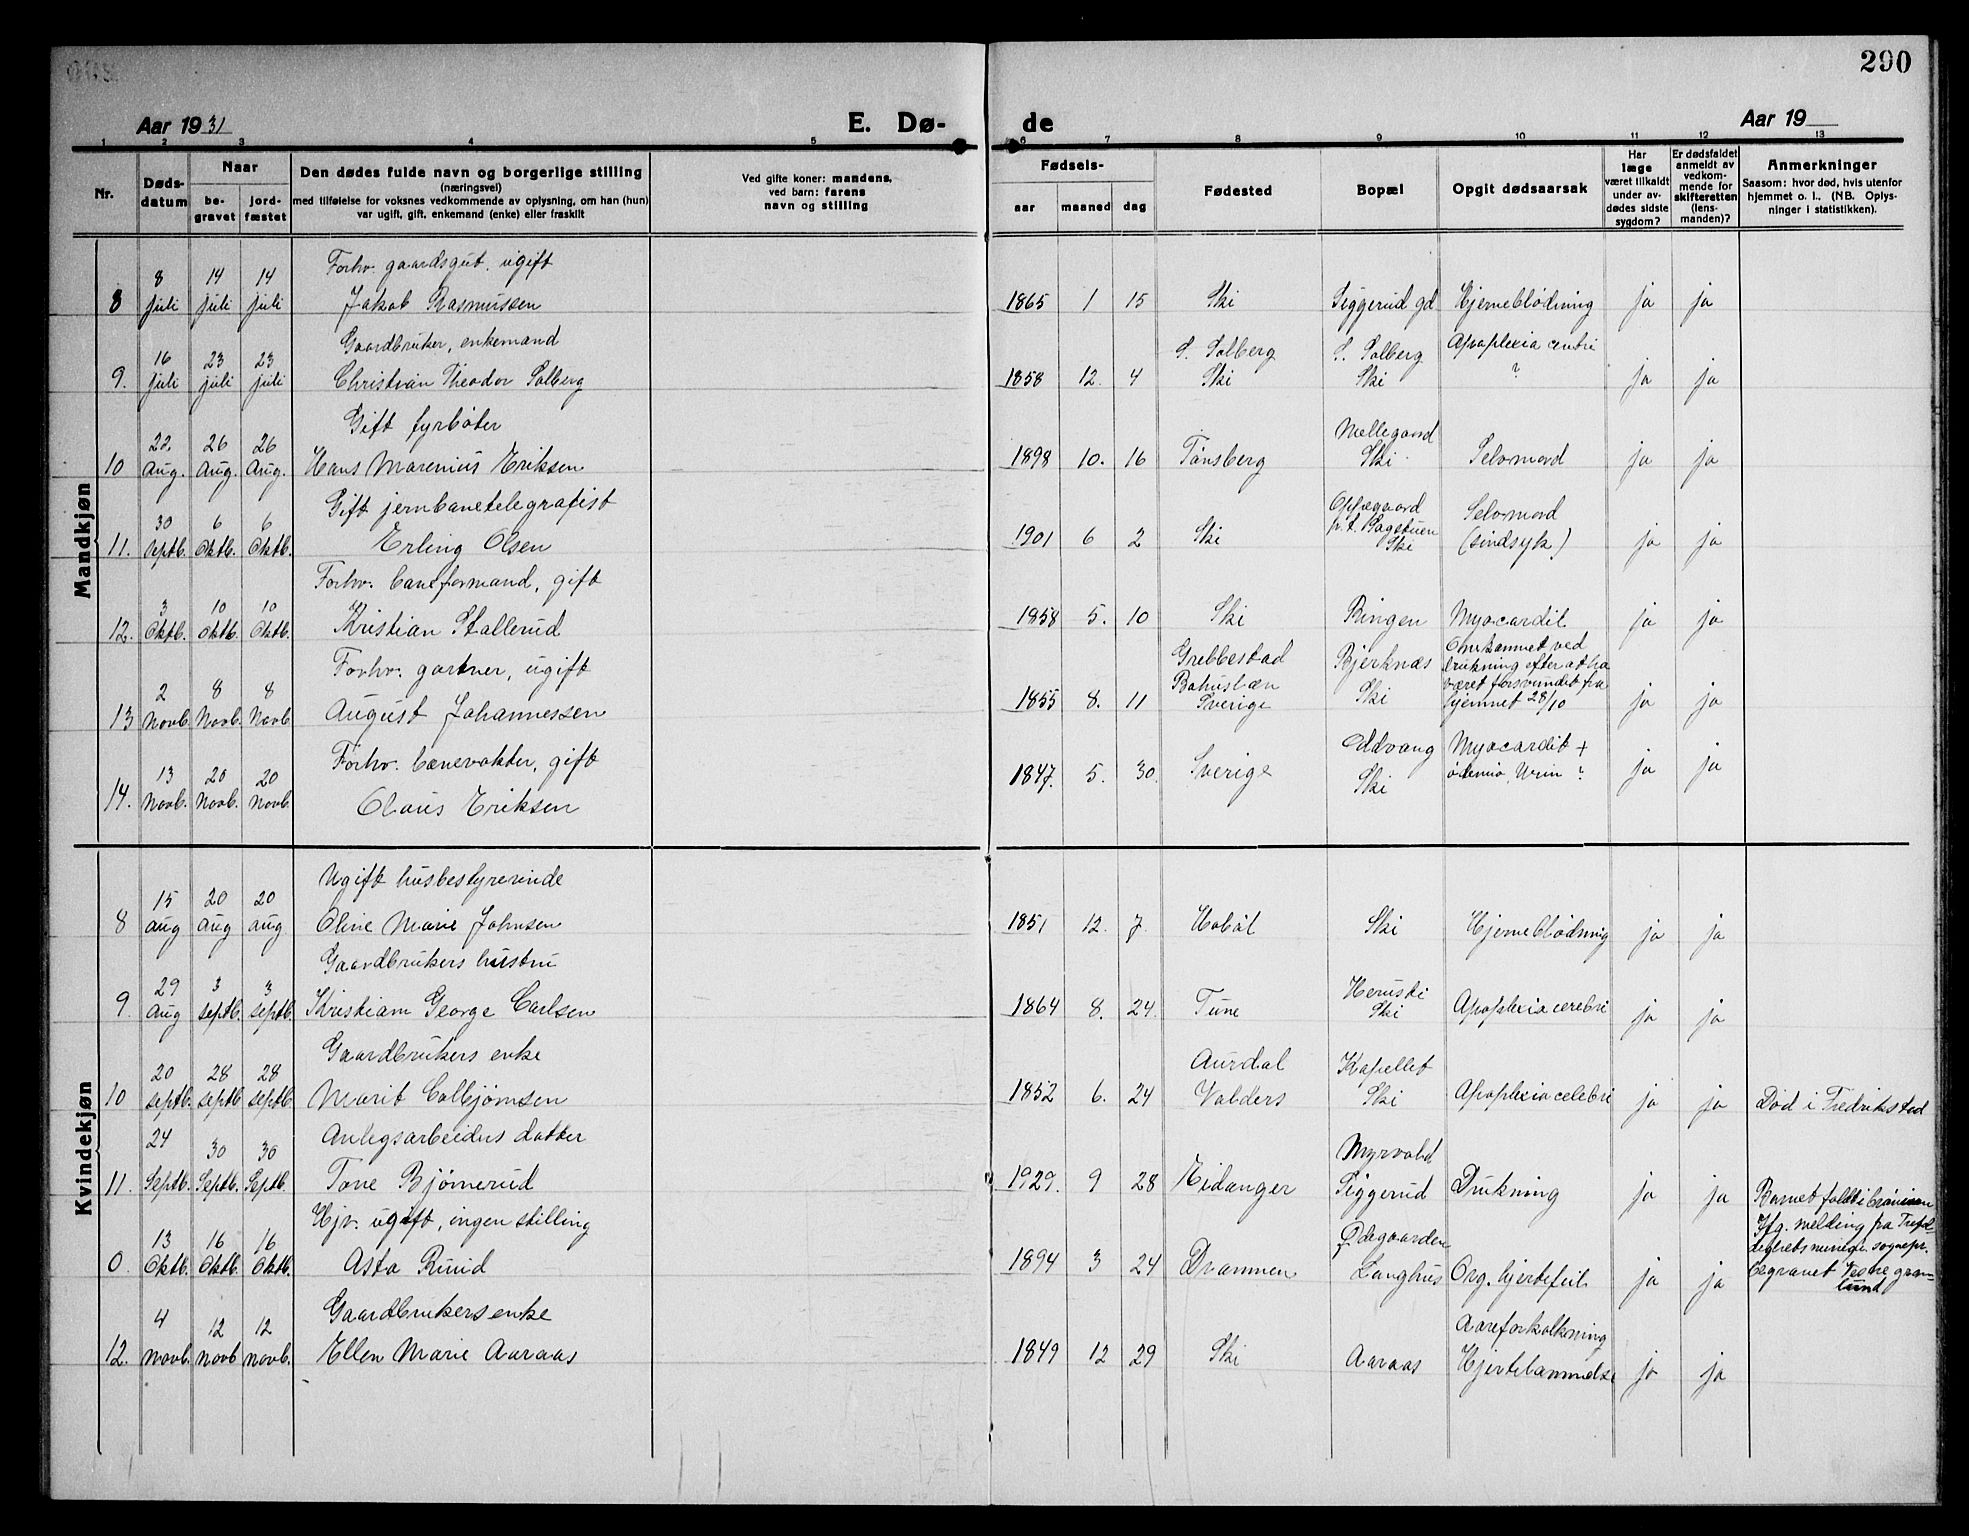 290
Aar 1931
E. Dø-
de
Aar 19
1 2 3 4 5 6 7 8 9 10 11 12 13
Nr.
Døds-
datum
Naar
be-
gravet
jord-
fæstet
Den dødes fulde navn og borgerlige stilling
(næringsvei)
med tilføielse for voksnes vedkommende av oplysning, om han (hun)
var ugift, gift, enkemand (enke) eller fraskilt
Ved gifte koner: mandens,
ved barn: farens
navn og stilling
Fødsels-
aar maaned dag
Fødested
Bopæl
Opgit dødsaarsak
Har
læge
været tilkaldt
under av-
dødes sidste
sygdom?
Er dødsfaldet
anmeldt av
vedkom-
mende for
skifteretten
(lens-
manden)?
Anmerkninger
Saasom: hvor død, hvis utenfor
hjemmet o. l.. (NB. Oplys-
ninger i statistikken).
Mandkjøn
Forhv. gaardsgut. ugift
8 14 14
8 juli juli juli Jakob Rasmussen 1865 1 15 Ski Siggerud gd Hjerneblødning ja ja
Gaardbruker, enkemand
16 23 23 S. Solberg S. Solberg Apoplexia centri
9. juli juli juli Christian Theodor Solberg 1858 12. 4 Ski Ski ? ja ja
Gift fyrbøter
22. 26 26 Mellegaard
10 Aug. Aug. Aug. Hans Marenius Eriksen 1898 10. 16 Tønsberg Ski Selvmord ja ja
Gift jernbanetelegrafist
30 6 6 Oppegaard Selvmord
11. septb. Oktb. Oktb. Erling Olsen 1901 6 2 Ski p.t. Sagstuen (sindsyk) ja ja
Ski
Forhv. baneformand, gift
3 10 10
12. Oktb. Oktb. Oktb. Kristian Stallerud 1858 5. 10 Ski Ringen Myocardit ja ja
Forhv. gartner, ugift
Grebbestad Bjerknæs Omkommet ved
drukning efter at ha
2 8 8 Bohuslæn været forsvundet fra
13 Novb. Novb. Novb. August Johannessen 1855 8. 11 Sverige Ski hjemmet 28/10 ja ja
Forhv. banevokter, gift
13 20 20 Oddvang Myocardit +
14. Novb. Novb. Novb. Olaus Eriksen 1847. 5. 30. Sverige Ski Urin ? ja ja
Kvindekjøn
Ugift husbestyrerinde
15 20 20
8 aug aug aug Oline Marie Johnsen 1851 12. 7. Hobøl Ski Hjerneblødning ja ja
Gaardbrukers hustru
29 3 3
9. Aug septb. septb. Kristiam George Carlsen 1864 8. 24. Tune Ski Apoplexia cerebri ja ja
Gaardbrukers enke
20 28 28 Aurdal Kapellet
10 septb. septb septb. Marit Colbjørnsen 1852 6. 24 Valders Ski Apoplexia celebri ja ja Død i Fredrikstad
Anlegsarbeiders datter
24 30 30 Myrvold
11. Septb. Septb. Septb. Tove Bjørnerud 1929. 9 28 Eidanger Siggerud Drukning ja ja Barnet faldt i brønnen
Hjv. ugift, ingen stilling
13 16 16 Ødegaarden Ifg. melding fra
0. Oktb. Oktb. Oktb. Asta Ruud 1894 3 24 Drammen Langhus Org. hjertefeil ja ja sognepr.
begravet Vestre grav-
lund
Gaardbrukers enke
4 12 12 Aareforkalkning
12. novb. novb novb. Ellen Marie Aaraas 1849 12 29 Ski Aaraas Hjertelammelse ja ja